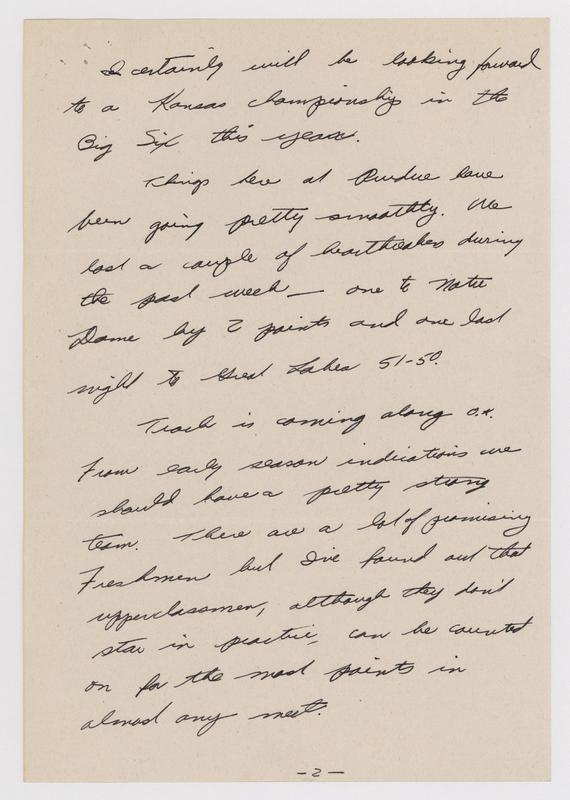 I certainly will be looking forward
to a Kansas championship in the
Big Six this year.
Things here at Purdue have
been going pretty smoothly. We
lost a couple of heartbreakers during
the past week — one to Notre
Dame by 2 points and one last
night to Great Lakes 51-50.
Track is coming along O.K.
From early season indications we
should have a pretty strong
team. There are a lot of promising
Freshmen but I've found out that
upperclassmen, although they don't
star in practice, can be counted
on for the most points in
almost any meet.
-2-